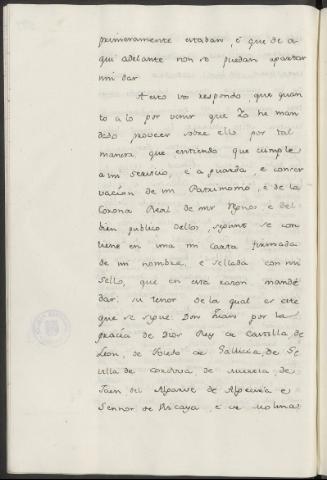 primeramente estaban, é que de a-
qui adelante non se puedan apartar
ni dar
A esto vos respondo que quan
to a lo por venir que Yo he man
dado proveer sobre ello por tal
manera que entiendo que cumple
a mi servicio, é a guarda e conser
vacion de mi Patrimonio, é de la
Corona Real de mis Reynos e del
bien publico dellos, segunt se con
tiene en una mi carta firmada
de mi nombre, e sellada con mi
sello, que en esta razon mandé
dar, su tenor de la qual es este
que se sigue: Don Juan por la
gracia de Dios Rey de Castilla, de
Leon, de Toledo de Gallicia, de Se
villa de Cordova de Murcia, de
Jaen del Algarve de Algecira e
Sennor de Vizcaya, é de Molina